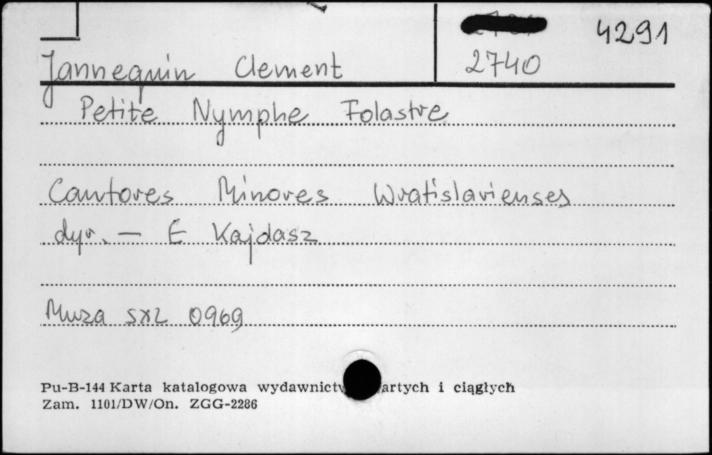 4291
Jannequin Clement 2740
Petite Nymphe Folastre
Cantores Minores Wratislavienses
dyr. — E Kajdasz
Muza sxl 0969
Pu-B-144 Karta katalogowa wydawnictw artych i ciągłych
Zam. 1101/DW/On. ZGG-2286